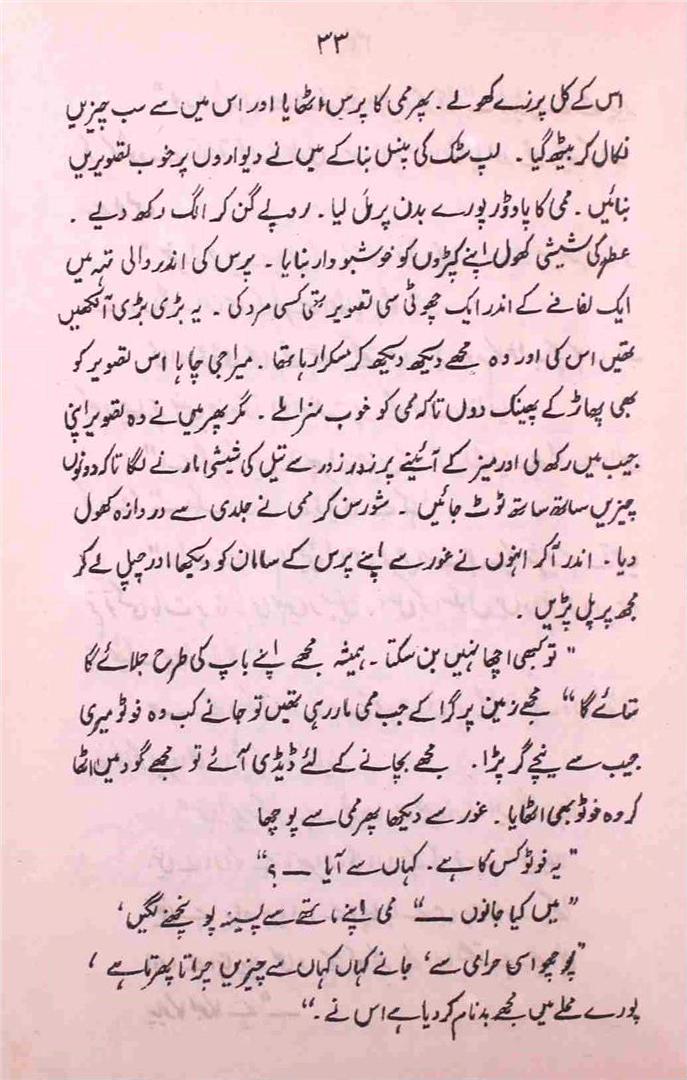 ۳۳
اس کے کل پرزے کھولے۔ پھر ممی کا پرس اٹھایا اور اس میں سے سب چیزیں
نکال کر بیٹھ گیا۔ لپ سٹک کی پنسل بنا کے میں نے دیواروں پر خوب تصویریں
بنائیں۔ ممی کا پاوڈر پورے بدن پر مل لیا۔ روپے گن کر الگ رکھ دیے۔
عطر کی شیشی کھول اپنے کپڑوں کو خوشبو دار بنایا۔ پرس کی اندر والی تہہ میں
ایک لفافے کے اندر ایک چھوٹی سی تصویر تھی کسی مرد کی۔ یہ بڑی بڑی آنکھیں
تھیں اس کی اور وہ مجھے دیکھ دیکھ کر مسکرا رہا تھا۔ میرا جی چاہا اس تصویر کو
بھی پھاڑ کے پھینک دوں تاکہ ممی کو خوب سزا ملے۔ مگر پھر میں نے وہ تصویر اپنی
جیب میں رکھ لی اور میز کے آئینے پر زور زور سے تیل کی شیشی مارنے لگا تاکہ دونوں
چیزیں ساتھ ساتھ ٹوٹ جائیں۔ شور سن کر ممی نے جلدی سے دروازہ کھول
دیا۔ اندر آ کر انہوں نے غور سے اپنے پرس کے سامان کو دیکھا اور چپل لے کر
مجھ پر پل پڑیں۔
"تو کبھی اچھا نہیں بن سکتا۔ ہمیشہ مجھے اپنے باپ کی طرح جلائے گا
ستائے گا" مجھے زمین پر گرا کے جب ممی مار رہی تھیں تو جانے کب وہ فوٹو میری
جیب سے نیچے گر پڑا۔ مجھے بچانے کے لئے ڈیڈی آئے تو مجھے گود میں اٹھا
کر وہ فوٹو بھی اٹھایا۔ غور سے دیکھا پھر ممی سے پوچھا
"یہ فوٹو کس کا ہے۔ کہاں سے آیا ــــ؟"
"میں کیا جانوں ــــ" ممی اپنے ماتھے سے پسینہ پونچھنے لگیں،
"پوچھو اسی حرامی سے، جانے کہاں کہاں سے چیزیں چراتا پھرتا ہے،
پورے محلے میں مجھے بدنام کر دیا ہے اس نے۔"